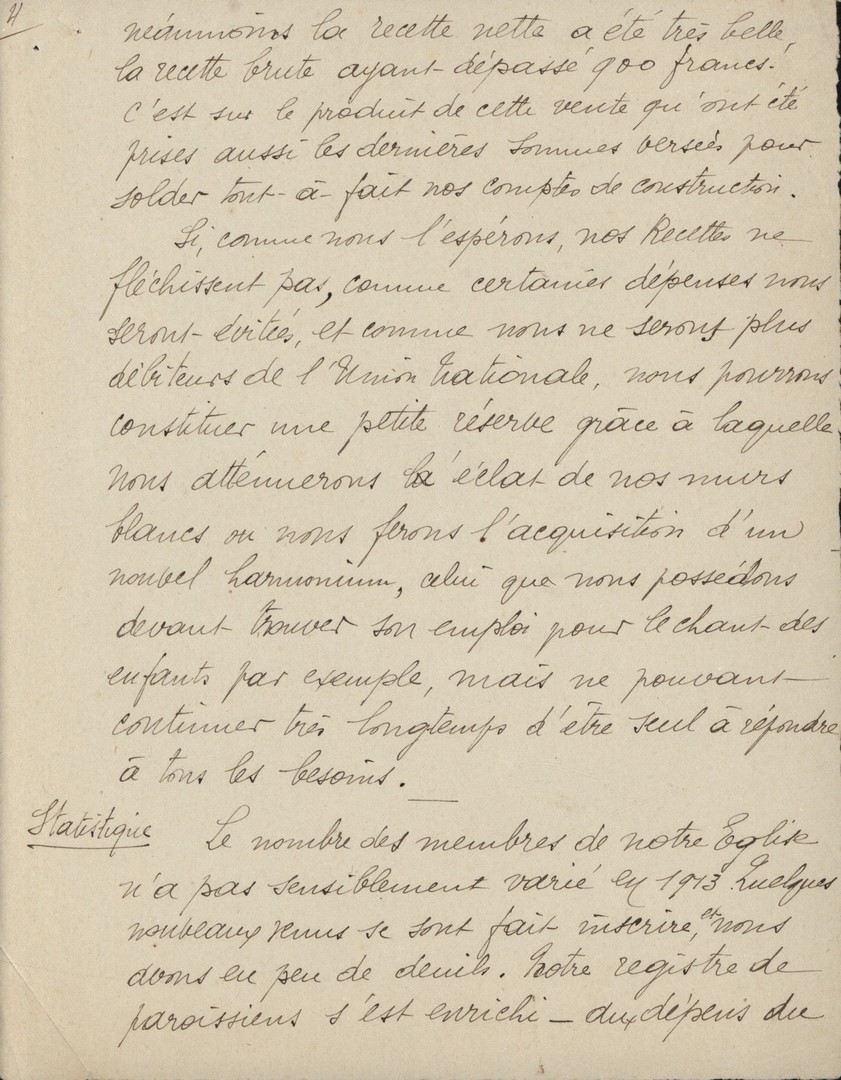 4
néanmoins la recette nette a été très belle,
la recette brute ayant dépassé 900 francs.
C'est sur le produit de cette vente qu'ont été
prises aussi les dernières sommes versées pour
solder tout-à-fait nos comptes de construction.
Si, comme nous l'espérons, nos Recettes ne
fléchissent pas, comme certaines dépenses nous
seront évitées, et comme nous ne serons plus
débiteurs de l'Union Nationale, nous pourrons
constituer une petite réserve grâce à laquelle
nous atténuerons l'éclat de nos murs
blancs ou nous ferons l'acquisition d'un
nouvel harmonium, celui que nous possédons
devant trouver son emploi pour le chant des
enfants par exemple, mais ne pouvant
continuer très longtemps d'être seul à répondre
à tous les besoins.
Statistique Le nombre des membres de notre Eglise
n'a pas sensiblement varié en 1913. Quelques
nouveaux venus se sont fait inscrire, et nous
avons eu peu de deuils. Notre registre de
paroissiens s'est enrichi — aux dépens du